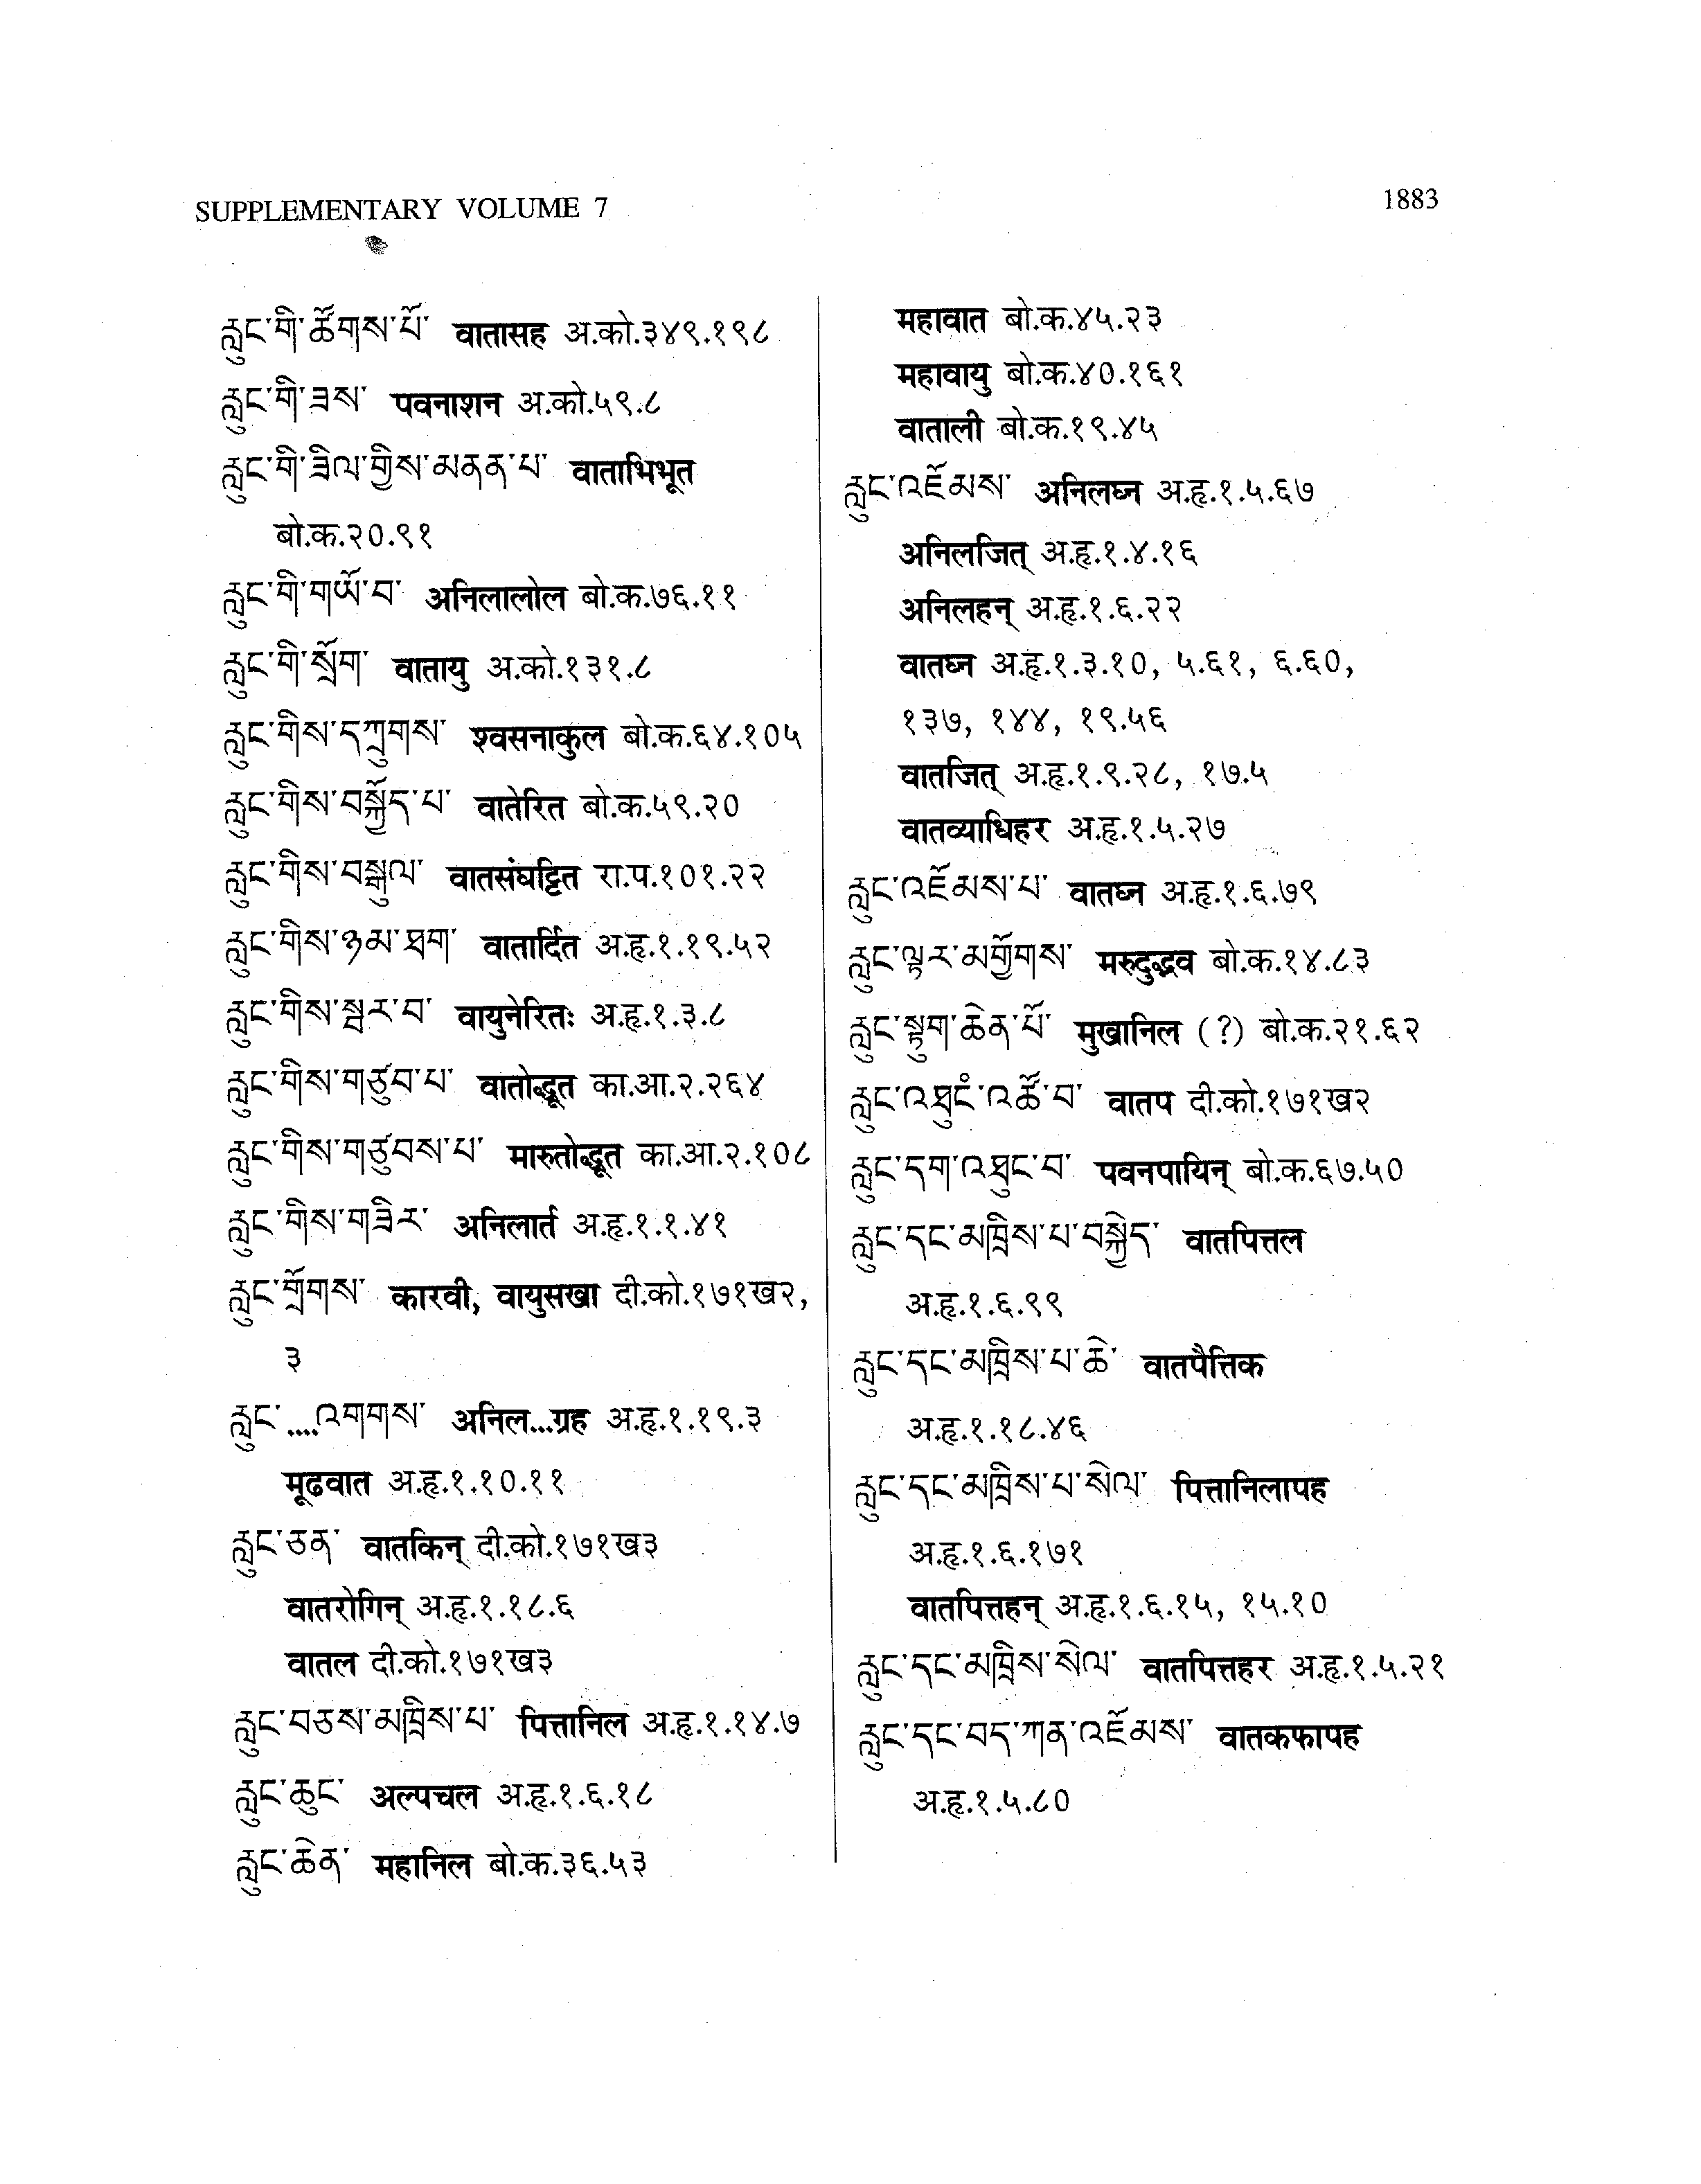 SUPPLEMENTARY VOLUME 7
1883
རླུང་གི་ཚོགས་པོ་ वातासह अ.को.३४९.१९८
རླུང་གི་ཟས་ पवनाशन अ.को.५९.८
རླུང་གི་ཟིལ་གྱིས་མནན་པ་ वाताभिभूत
बो.क.२०.९१
རླུང་གི་གཡོ་བ་ अनिलालोल बो.क.७६.११
རླུང་གི་སྲོག་ वातायु अ.को.१३१.८
རླུང་གིས་དཀྲུགས་ श्वसनाकुल बो.क.६४.१०५
རླུང་གིས་བསྐྱོད་པ་ वातेरित बो.क.५९.२०
རླུང་གིས་བསྒུལ་ वातसंघट्टित रा.प.१०१.२२
རླུང་གིས་ཉམ་ཐག་ वातार्दित अ.हृ.१.१९.५२
རླུང་གིས་སྦར་བ་ वायुनेरितः अ.हृ.१.३.८
རླུང་གིས་གཙུབ་པ་ वातोद्धूत का.आ.२.२६४
རླུང་གིས་གཙུབས་པ་ मारुतोद्धूत का.आ.२.१०८
རླུང་གིས་གཟིར་ अनिलार्त अ.हृ.१.१.४१
རླུང་གྲོགས་ कारवी, वायुसखा दी.को.१७१ख२,
३
རླུང་....འགགས་ अनिल...ग्रह अ.हृ.१.१९.३
मूढवात अ.हृ.१.१०.११
རླུང་ཅན་ वातकिन् दी.को.१७१ख३
वातरोगिन् अ.हृ.१.१८.६
वातल दी.को.१७१ख३
རླུང་བཅས་མཁྲིས་པ་ पित्तानिल अ.हृ.१.१४.७
རླུང་ཆུང་ अल्पचल अ.हृ.१.६.१८
རླུང་ཆེན་ महानिल बो.क.३६.५३
महावात बो.क.४५.२३
महावायु बो.क.४०.१६१
वाताली बो.क.१९.४५
རླུང་འཇོམས་ अनिलघ्न अ.हृ.१.५.६७
अनिलजित् अ.हृ.१.४.१६
अनिलहन् अ.हृ.१.६.२२
वातघ्न अ.हृ.१.३.१०, ५.६१, ६.६०,
१३७, १४४, १९.५६
वातजित् अ.हृ.१.९.२८, १७.५
वातव्याधिहर अ.हृ.१.५.२७
རླུང་འཇོམས་པ་ वातघ्न अ.हृ.१.६.७९
རླུང་ལྟར་མགྱོགས་ मरुदुद्भव बो.क.१४.८३
རླུང་སྟུག་ཆེན་པོ་ मुखानिल (?) बो.क.२१.६२
རླུང་འཐུང་འཚོ་བ་ वातप दी.को.१७१ख२
རླུང་དག་འཐུང་བ་ पवनपायिन् बो.क.६७.५०
རླུང་དང་མཁྲིས་པ་བསྐྱེད་ वातपित्तल
अ.हृ.१.६.९९
རླུང་དང་མཁྲིས་པ་ཆེ་ वातपैत्तिक
अ.हृ.१.१८.४६
རླུང་དང་མཁྲིས་པ་སེལ་ पित्तानिलापह
अ.हृ.१.६.१७१
वातपित्तहन् अ.हृ.१.६.१५, १५.१०
རླུང་དང་མཁྲིས་སེལ་ वातपित्तहर अ.हृ.१.५.२१
རླུང་དང་བད་ཀན་འཇོམས་ वातकफापह
अ.हृ.१.५.८०